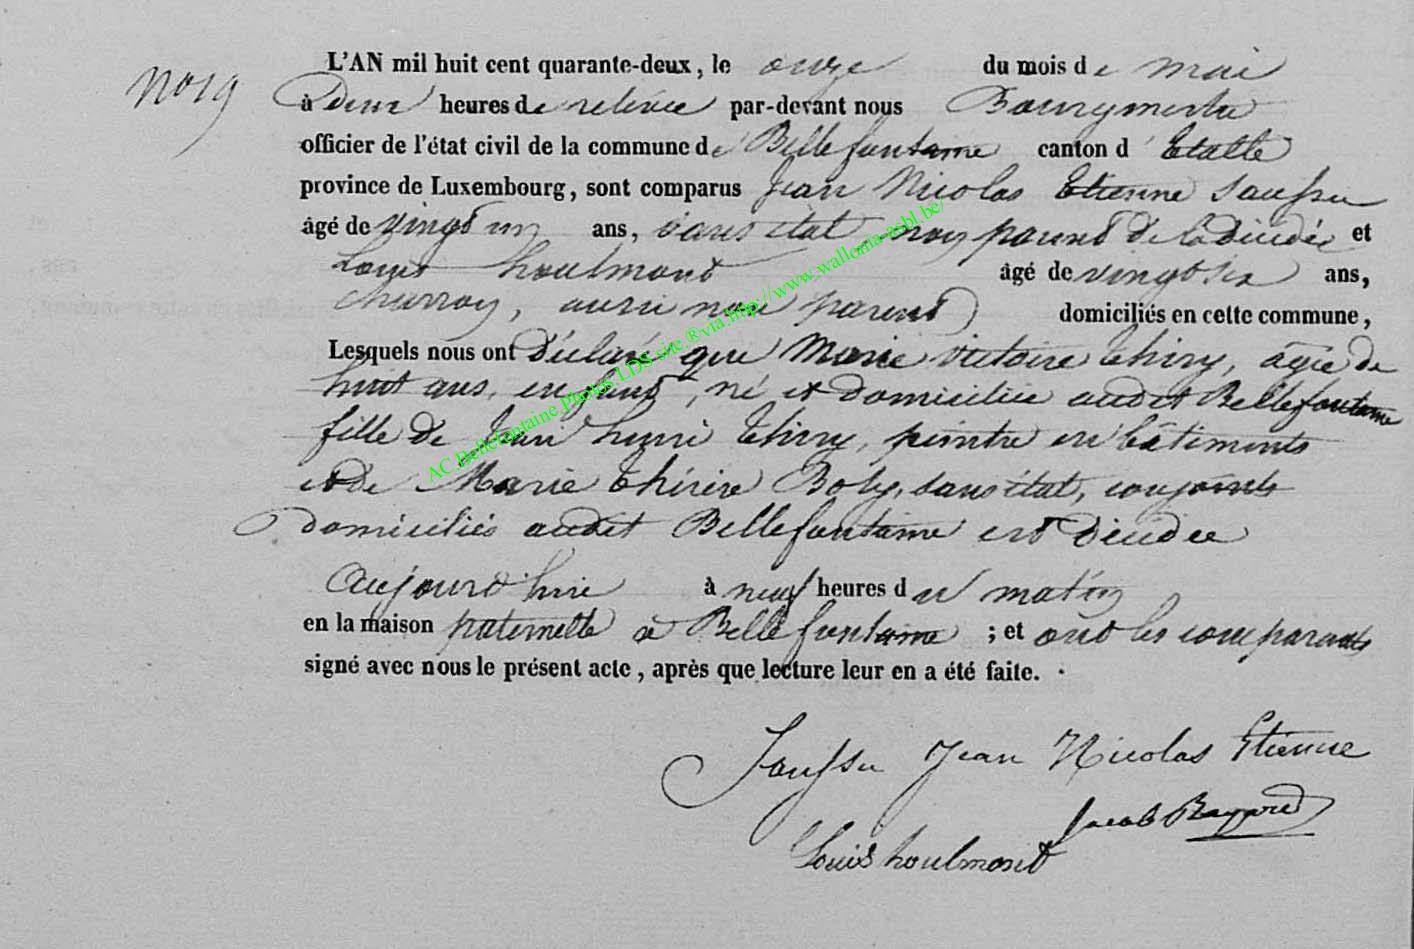 No 19
L'AN mil huit cent quarante-deux, le onze du mois de mai
à Deux heures de relevée par-devant nous Bourgmestre
officier de l'état civil de la commune de Bellefontaine canton d'Etalle
province de Luxembourg, sont comparus Jean Nicolas Etienne Saussu
âgé de vingt un ans, sans état, non parent de la décédée et
Louis houlmont âgé de vingt six ans,
charron, aussi non parent domiciliés en cette commune,
Lesquels nous ont déclaré que Marie victoire thiry, agée de
huit ans, enfant, né et domiciliée audit Bellefontaine
fille de Jean henri thiry, peintre en bâtiments
et de Marie thérèse Boly, sans état, conjoints
domiciliés audit Bellefontaine est décédée
aujourd'hui à neuf heures du matin
en la maison paternelle à Bellefontaine ; et ont les comparants
signé avec nous le présent acte, après que lecture leur en a été faite.
AC.Bellefontaine.Photos LDS site ® via http://www.wallonia-asbl.be/
Saussu Jean Nicolas Etienne
Jacob
Louis houlmont